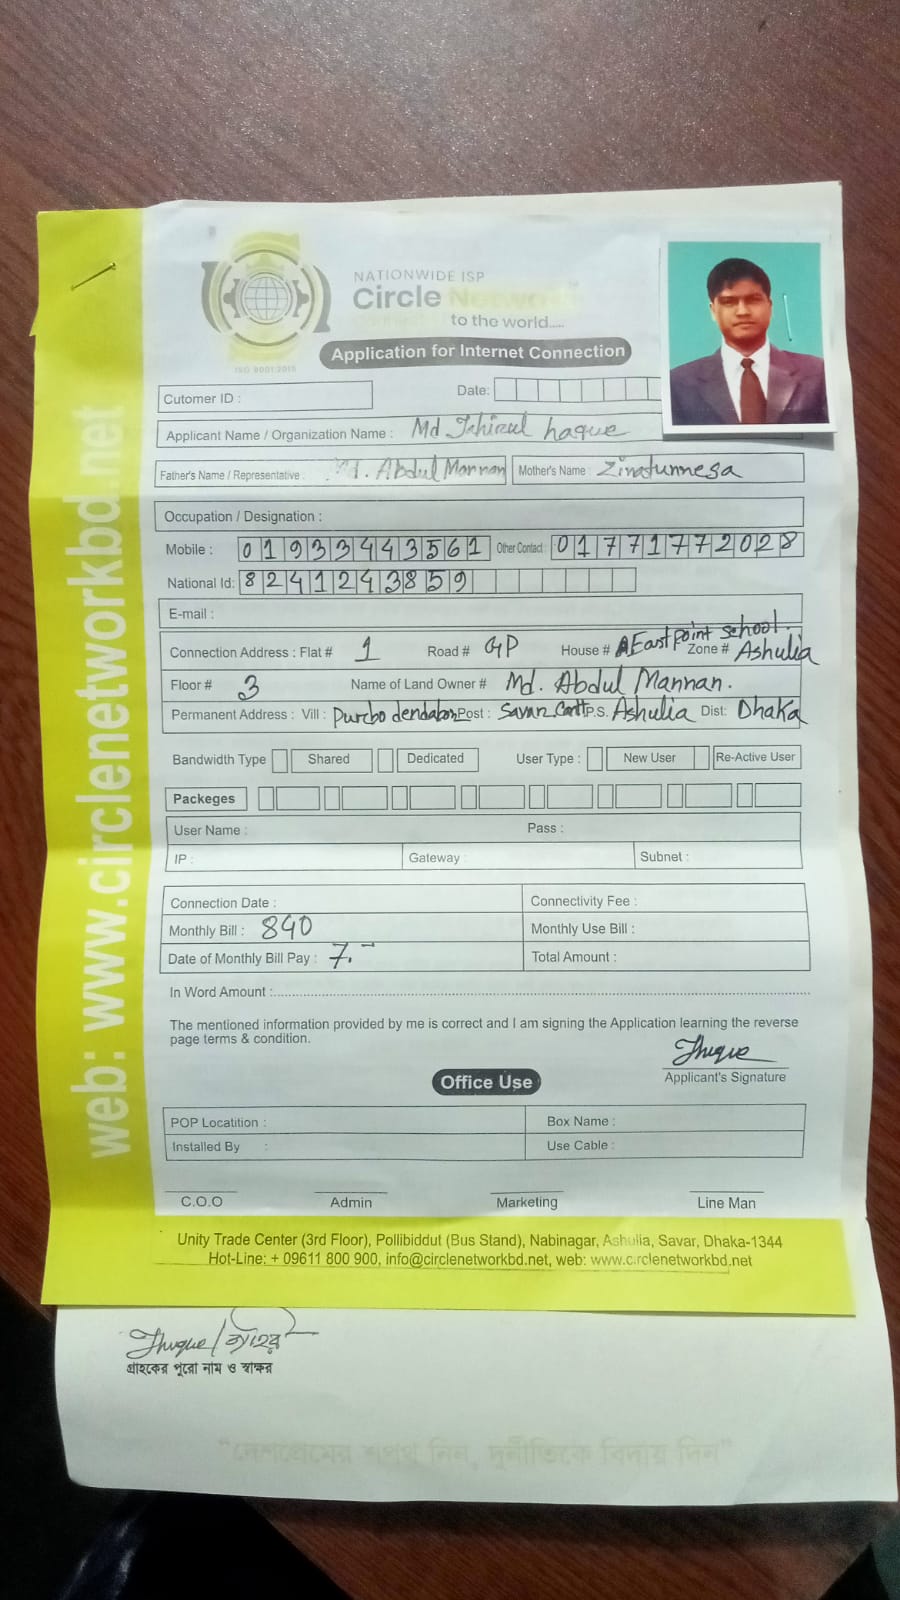 NATIONWIDE ISP
Circle Network
to the world.....
ISO 9001:2015
Application for Internet Connection
Cutomer ID :
Date:
Applicant Name / Organization Name : Md Jahirul haque
Father's Name / Representative : Md. Abdul Mannan Mother's Name : Zinatunnesa
Occupation / Designation :
Mobile : 01933443561 Other Contact : 01771772028
National Id: 8241243859
E-mail :
Connection Address : Flat # 1 Road # GP House # A East point school. Zone # Ashulia
Floor # 3 Name of Land Owner # Md. Abdul Mannan.
Permanent Address : Vill : Purbo dendabor Post : Savar Cantt P.S. Ashulia Dist: Dhaka
Bandwidth Type Shared Dedicated User Type : New User Re-Active User
Packeges
User Name : Pass :
IP : Gateway : Subnet :
Connection Date : Connectivity Fee :
Monthly Bill : 840 Monthly Use Bill :
Date of Monthly Bill Pay : 7. Total Amount :
In Word Amount :
The mentioned information provided by me is correct and I am signing the Application learning the reverse
page terms & condition.
Applicant's Signature
Office Use
POP Locatition : Box Name :
Installed By : Use Cable :
C.O.O Admin Marketing Line Man
Unity Trade Center (3rd Floor), Pollibiddut (Bus Stand), Nabinagar, Ashulia, Savar, Dhaka-1344
Hot-Line: + 09611 800 900, info@circlenetworkbd.net, web: www.circlenetworkbd.net
web: www.circlenetworkbd.net
গ্রাহকের পুরো নাম ও স্বাক্ষর
"দেশপ্রেমের শপথ নিন, দুর্নীতিকে বিদায় দিন"